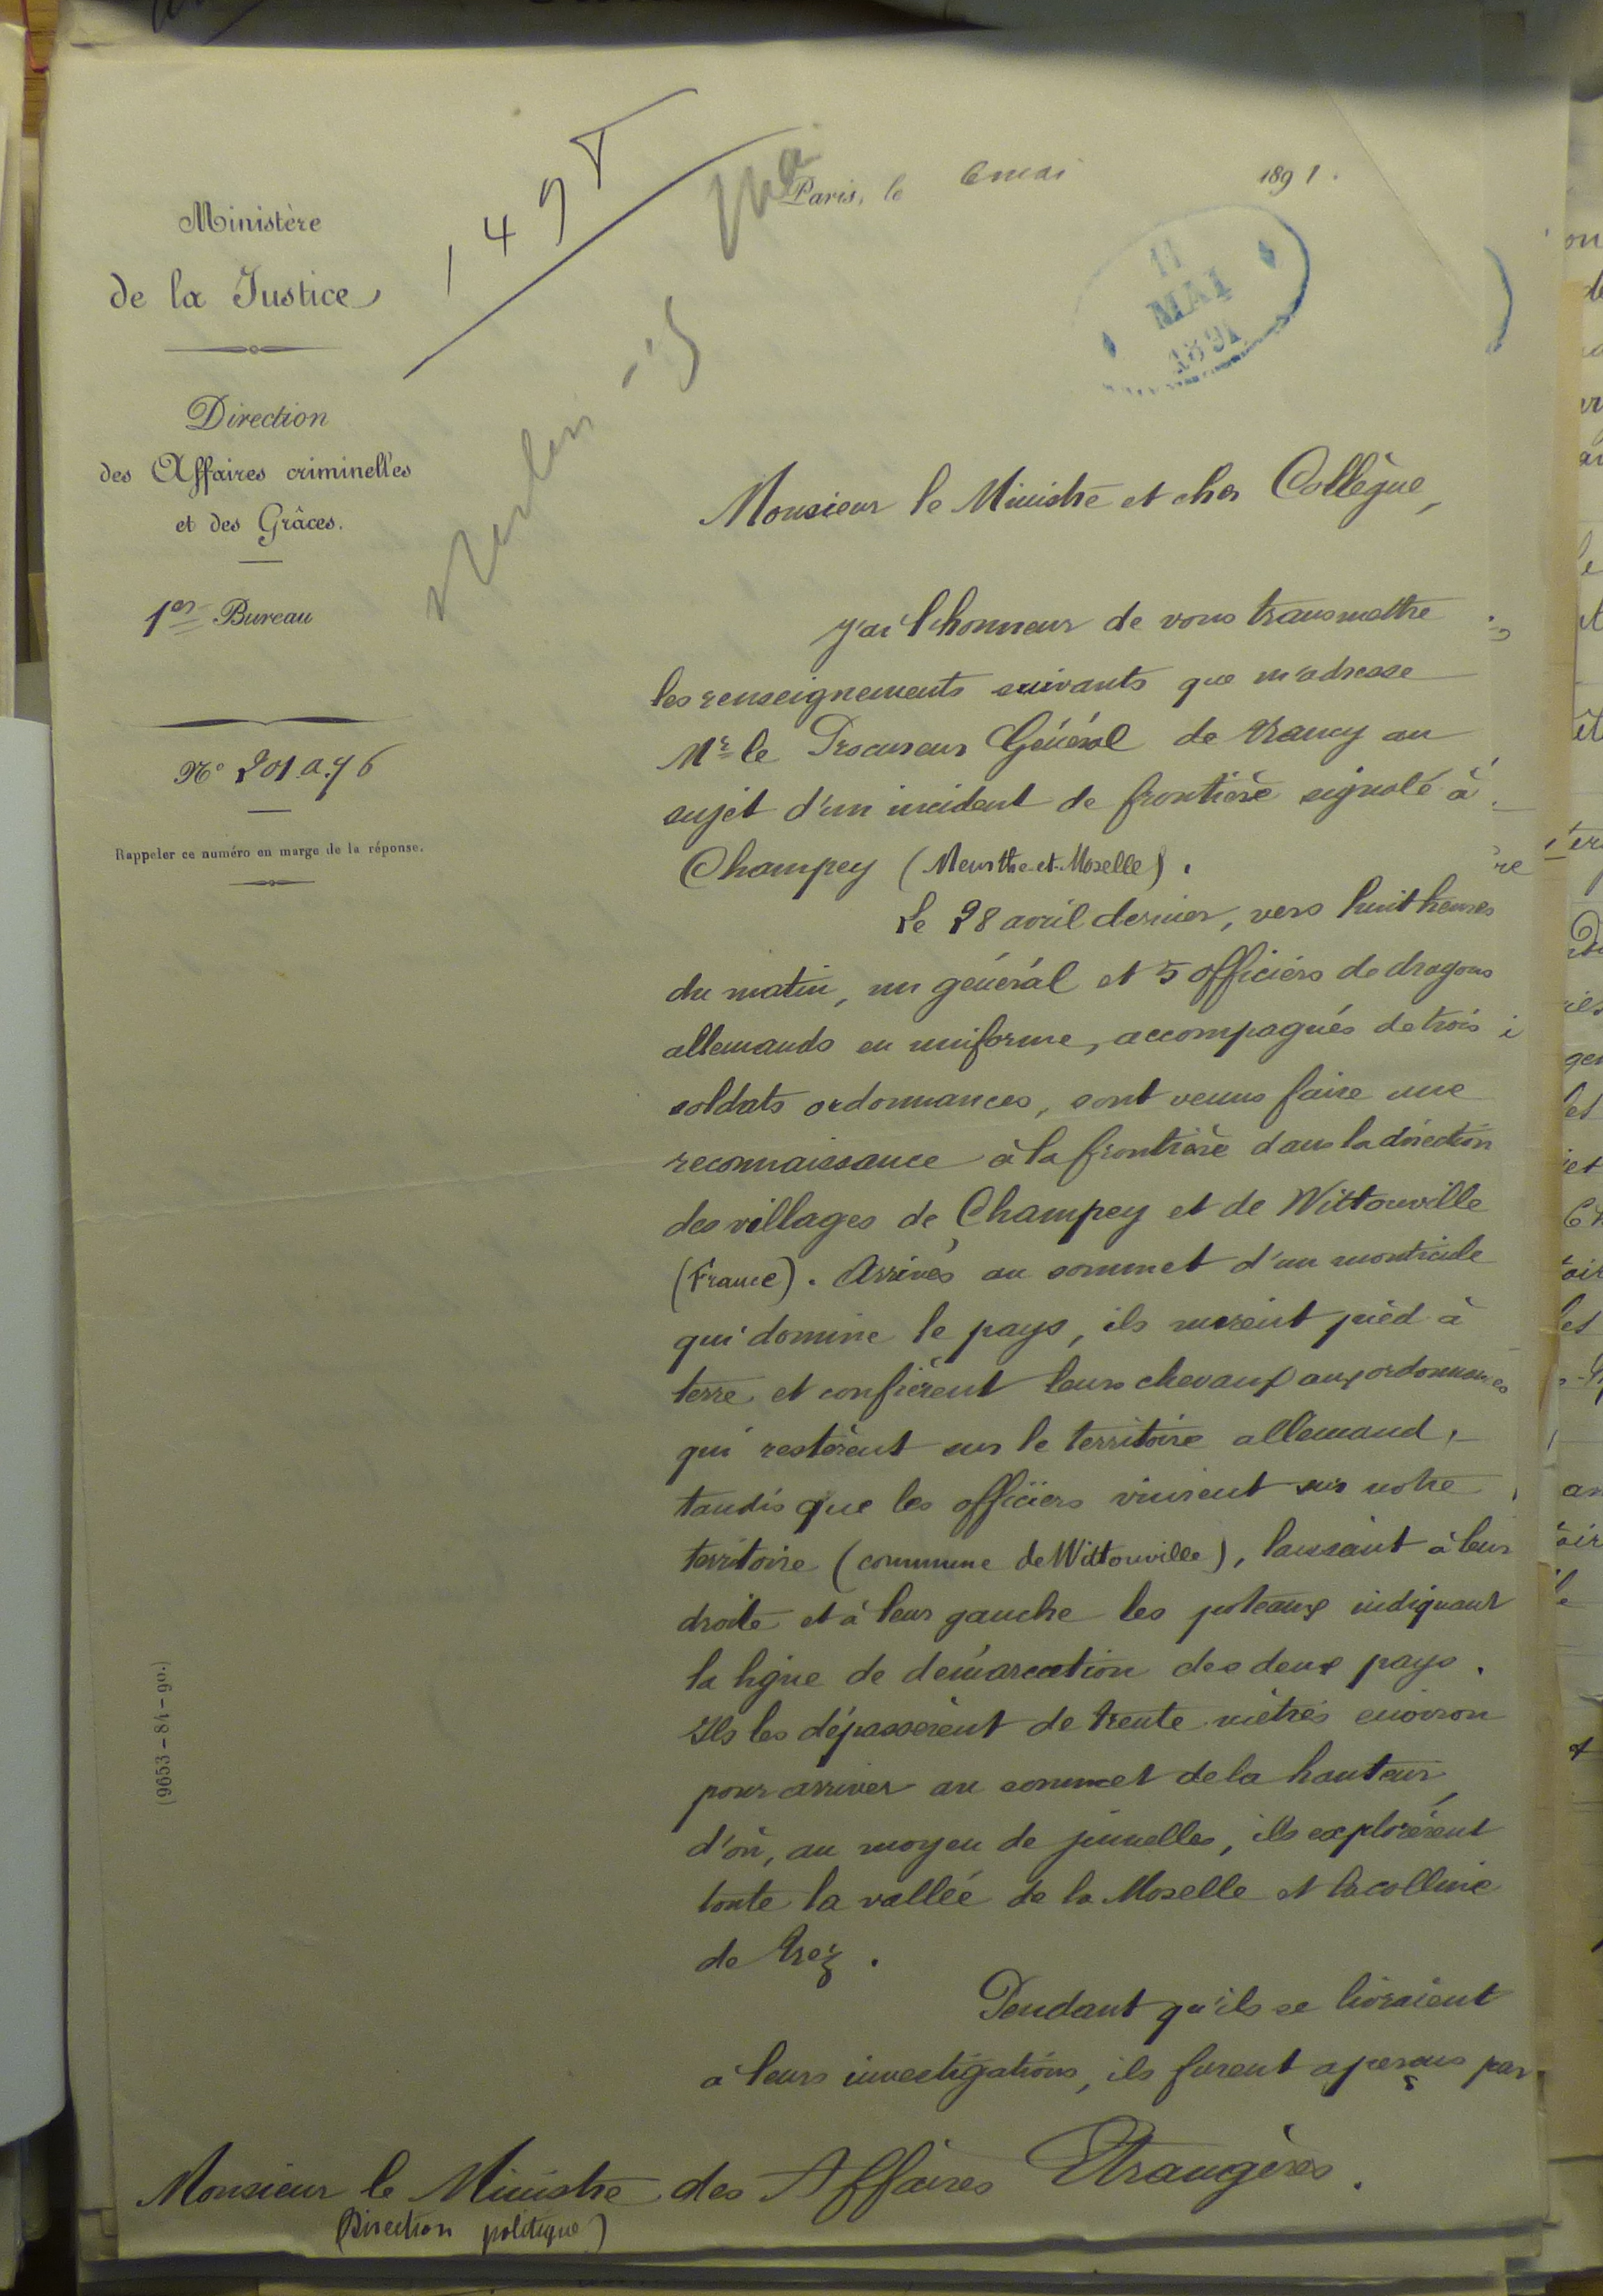 Ministère
de la Justice
Direction
des Affaires criminelles
et des Grâces.
1er Bureau
N° 201.a.76
Rappeler ce numéro en marge de la réponse.
(9653-84-90.)
Paris, le 6 mai 1891.
11
MAI
1891
Monsieur le Ministre et cher Collègue,
J'ai l'honneur de vous transmettre
les renseignements suivants que m'adresse
Mr le Procureur Général de Nancy au
sujet d'un incident de frontière signalé à
Champey (Meurthe-et-Moselle).
Le 28 avril dernier, vers huit heures
du matin, un général et 5 officiers de dragons
allemands en uniforme, accompagnés de trois
soldats ordonnances, sont venus faire une
reconnaissance à la frontière dans la direction
des villages de Champey et de Wittonville
(France). Arrivés au sommet d'un monticule
qui domine le pays, ils mirent pied à
terre et confièrent leurs chevaux aux ordonnances
qui restèrent sur le territoire allemand,
tandis que les officiers vinrent sur notre
territoire (commune de Wittonville), laissant à leur
droite et à leur gauche les poteaux indiquant
la ligne de démarcation des deux pays.
Ils les dépassèrent de trente mètres environ
pour arriver au sommet de la hauteur,
d'où, au moyen de jumelles, ils explorèrent
toute la vallée de la Moselle et la colline
de
Pendant qu'ils se livraient
à leurs investigations, ils furent aperçus par
Monsieur le Ministre des Affaires Etrangères.
(Direction politique)